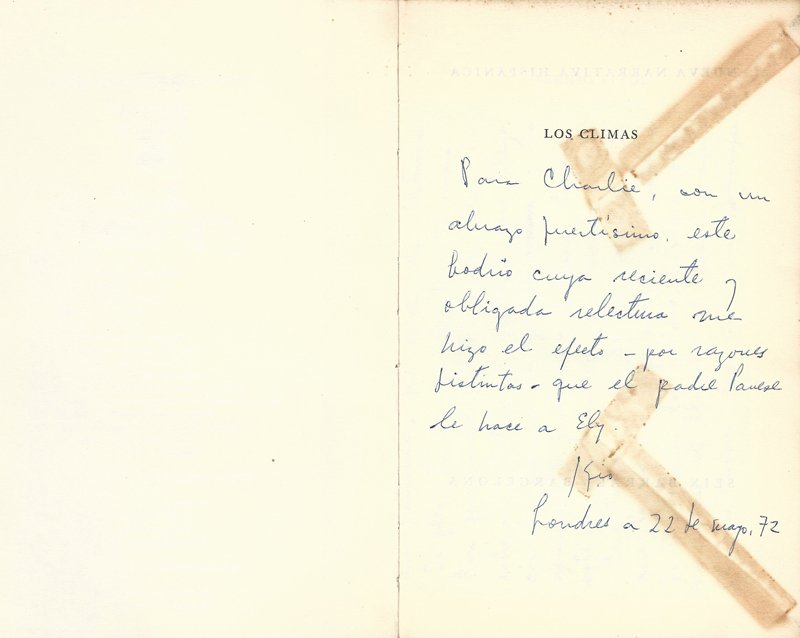 NUEVA NARRATIVA HISPÁNICA
LOS CLIMAS
Para Charlie, con un
abrazo fuertísimo, este
bodrio cuya reciente y
obligada relectura me
hizo el efecto - por razones
distintas - que el padre Pavese
le hace a Ely.
SEIX BARRAL BARCELONA
Londres a 22 de mayo, 72